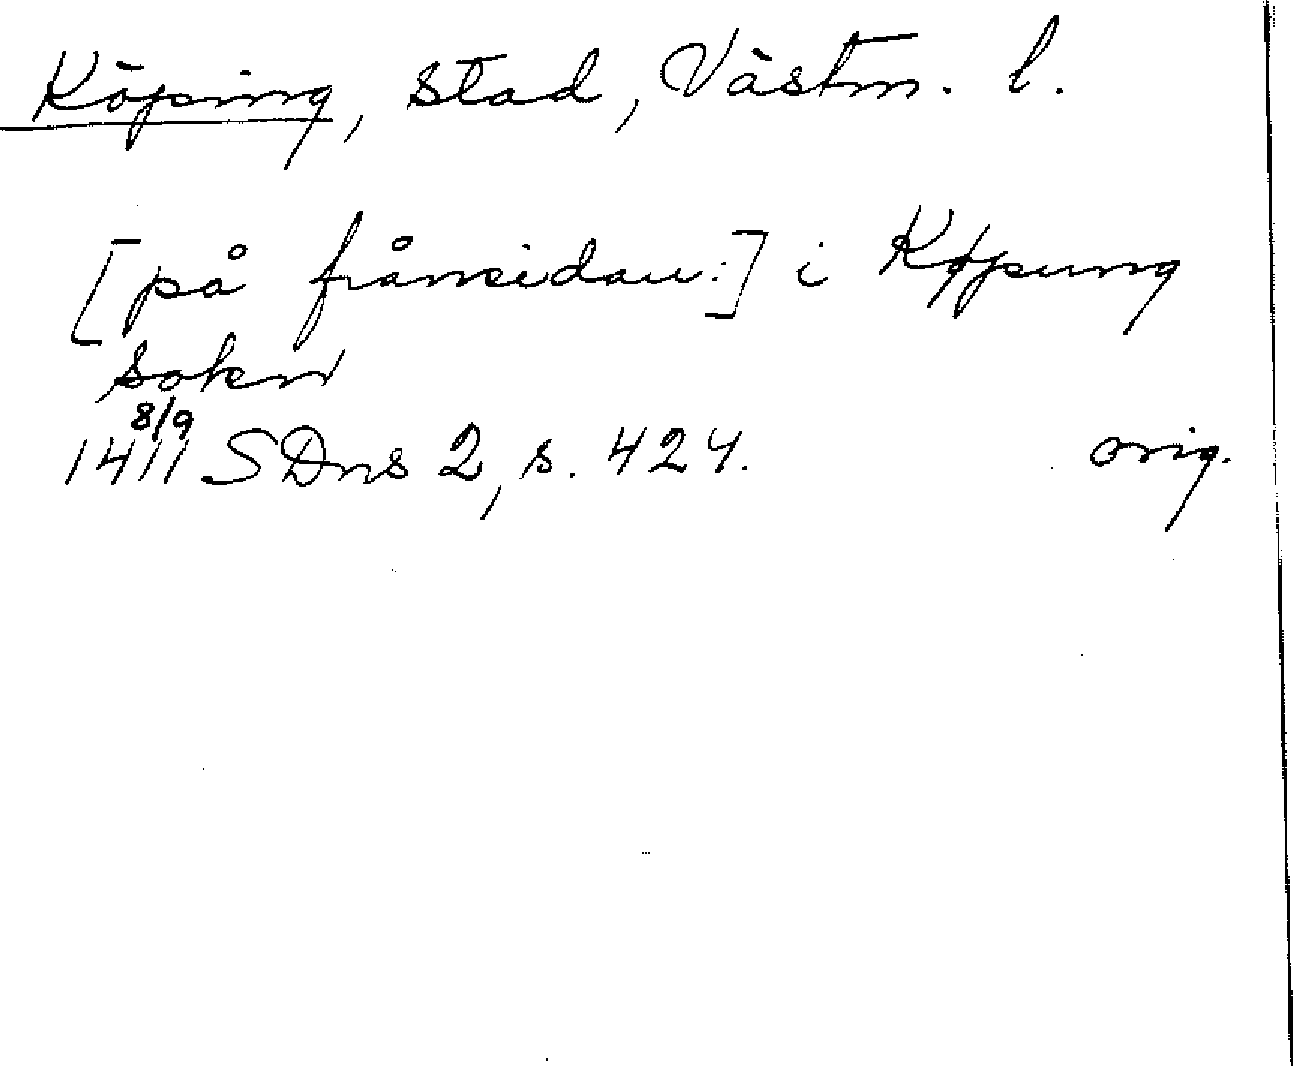 Köping, stad, Västm. l.
[på frånsidan:] i Køpung
sokn
1411 8/9 SDns 2, s. 424. orig.